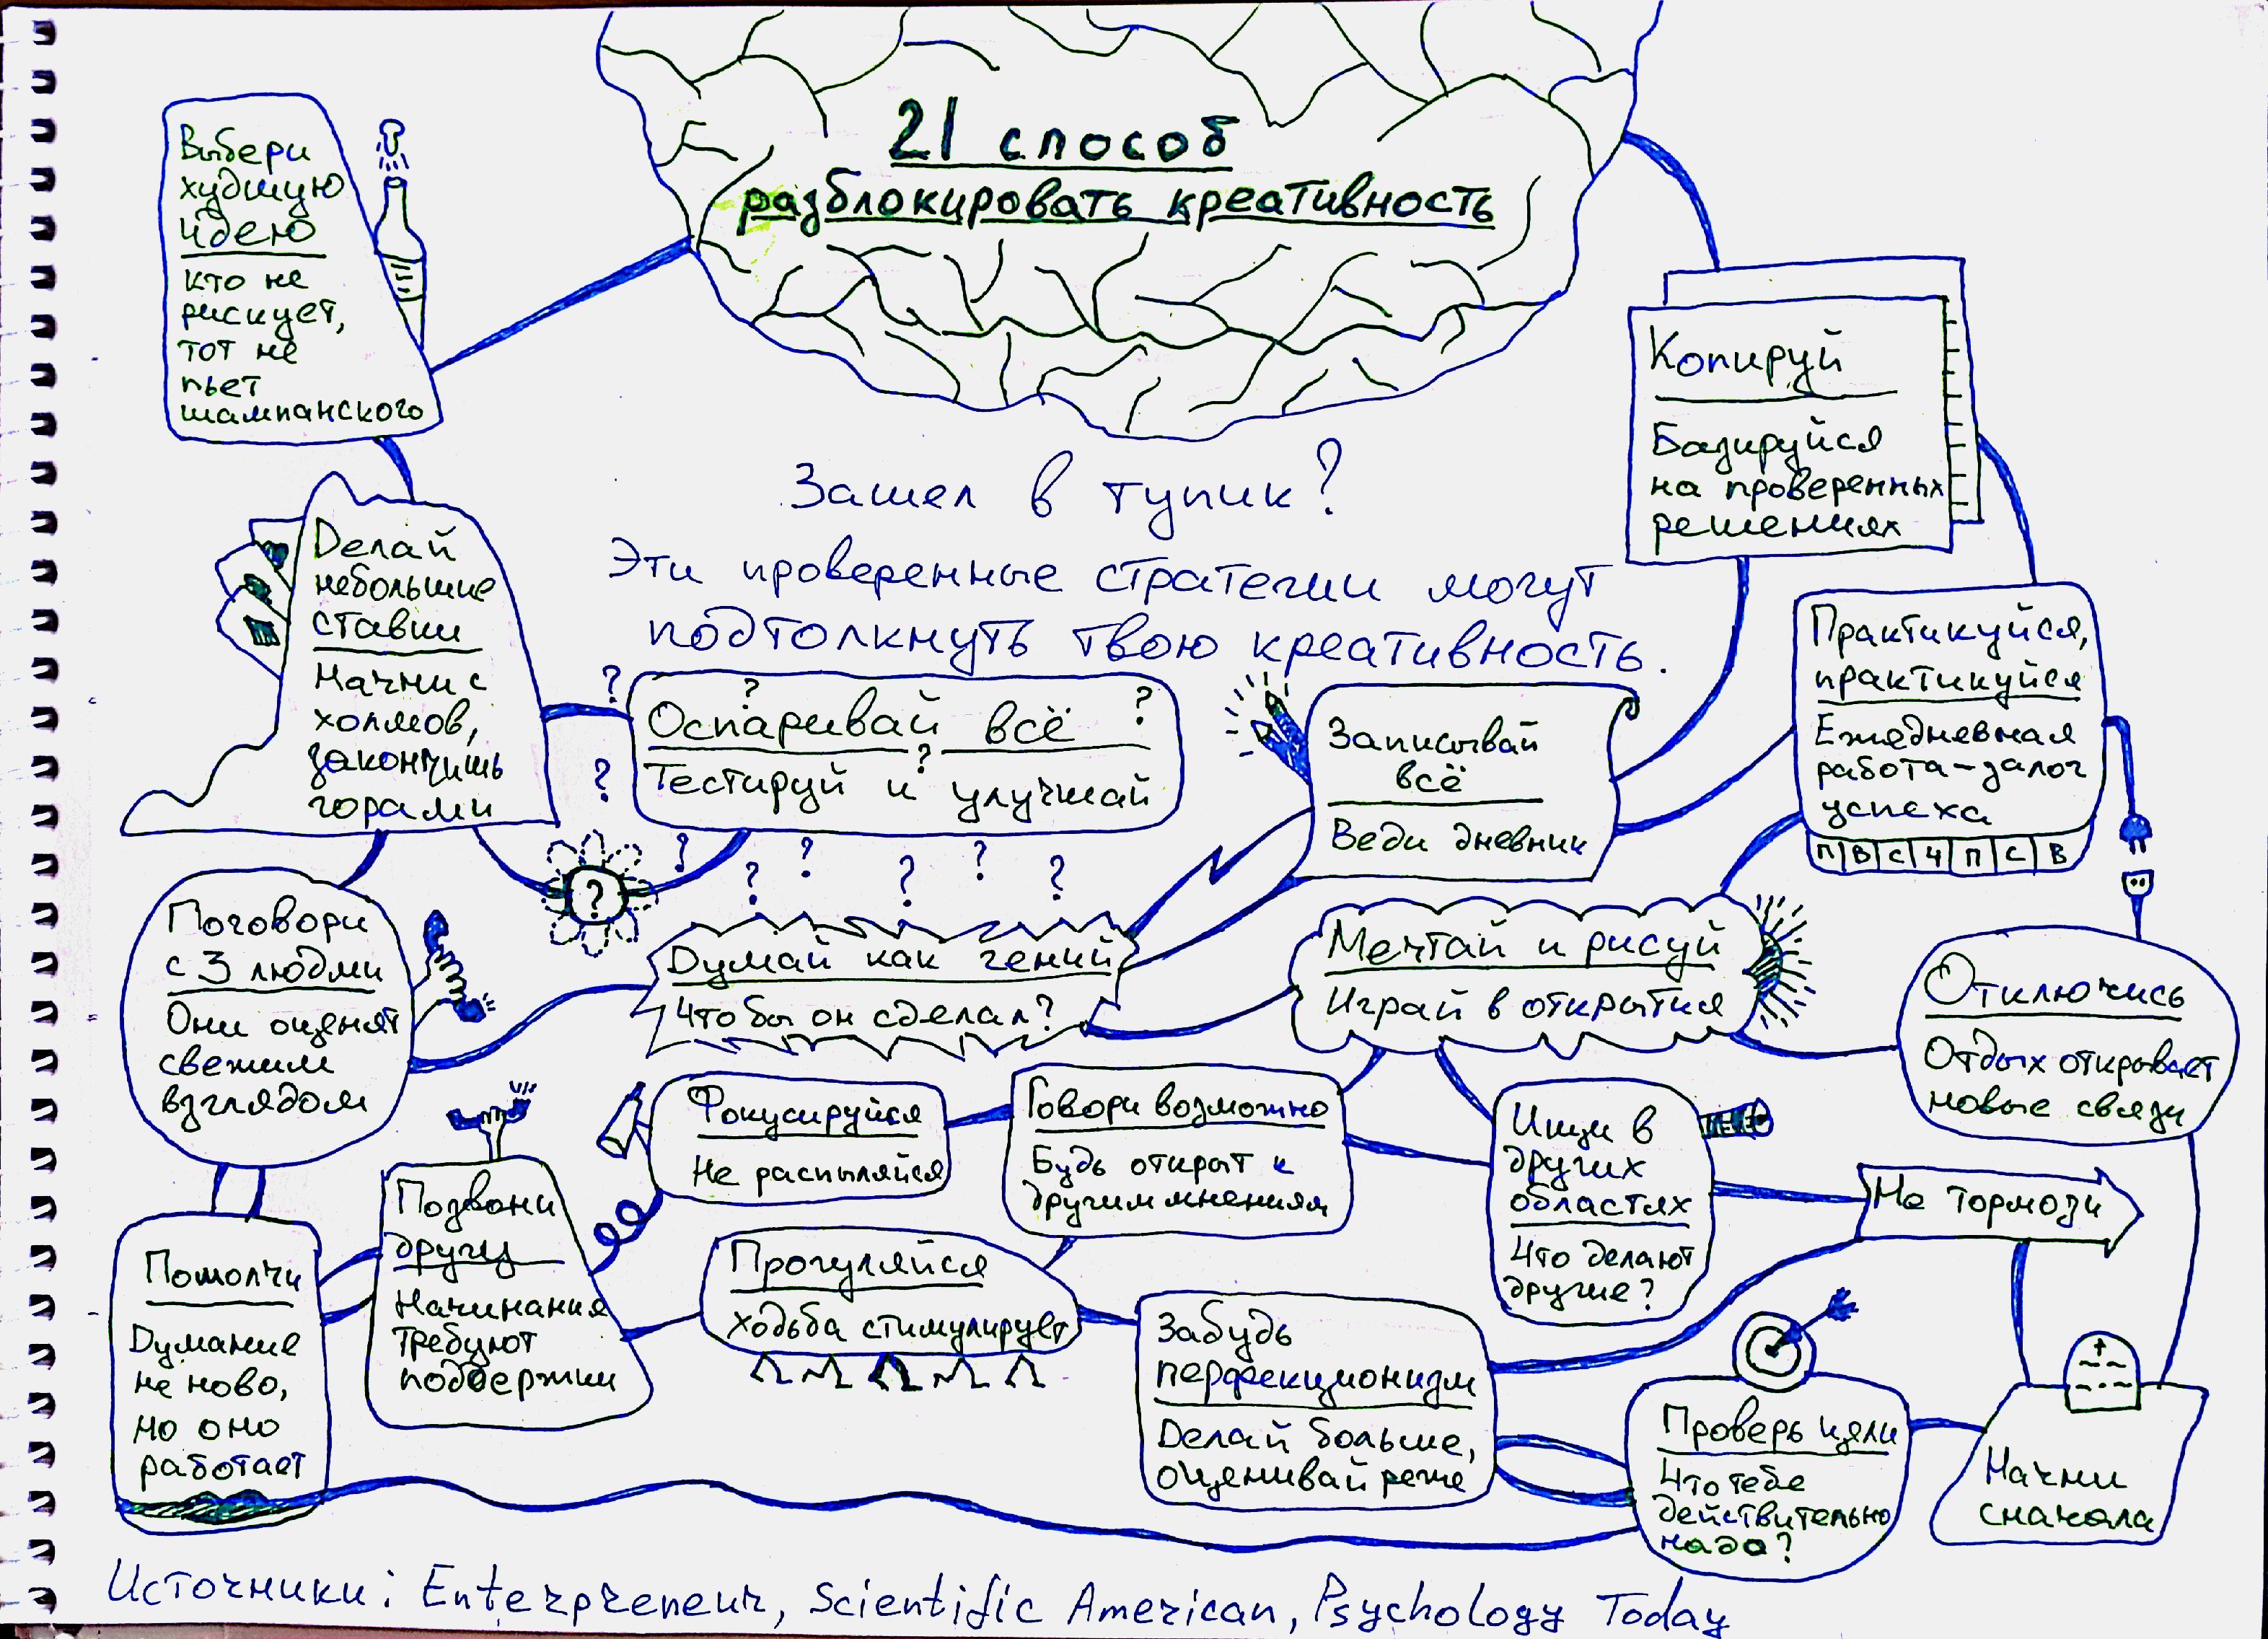 21 способ
разблокировать креативность
Выбери
худшую
идею
кто не
рискует,
тот не
пьет
шампанского
Зашел в тупик?
Эти проверенные стратегии могут
подтолкнуть твою креативность.
Копируй
Базируйся
на проверенных
решениях
Делай
небольшие
ставки
Начни с
холмов,
закончишь
горами
? ?
Оспаривай всё
?
?
Тестируй и улучшай
?
?
?
?
? ? ? ? ?
Записывай
всё
Веди дневник
Практикуйся,
практикуйся
Ежедневная
работа – залог
успеха
П В С Ч П С В
Поговори
с 3 людми
Они оценят
свежим
взглядом
Думай как гений
Что бы он сделал?
Мечтай и рисуй
Играй в открытия
Отключись
Отдых открывает
новые связи
Фокусируйся
Не распыляйся
Говори возможно
Будь открыт к
другим мнениям
Ищи в
других
областях
Что делают
другие?
Не тормози
Помолчи
Думание
не ново,
но оно
работает
Подзвони
другу
Начинания
требуют
поддержки
Прогуляйся
ходьба стимулирует
Забудь
перфекционизм
Делай больше,
оценивай реже
Проверь цели
Что тебе
действительно
надо?
Начни
сначала
Источники: Enterpreneur, Scientific American, Psychology Today